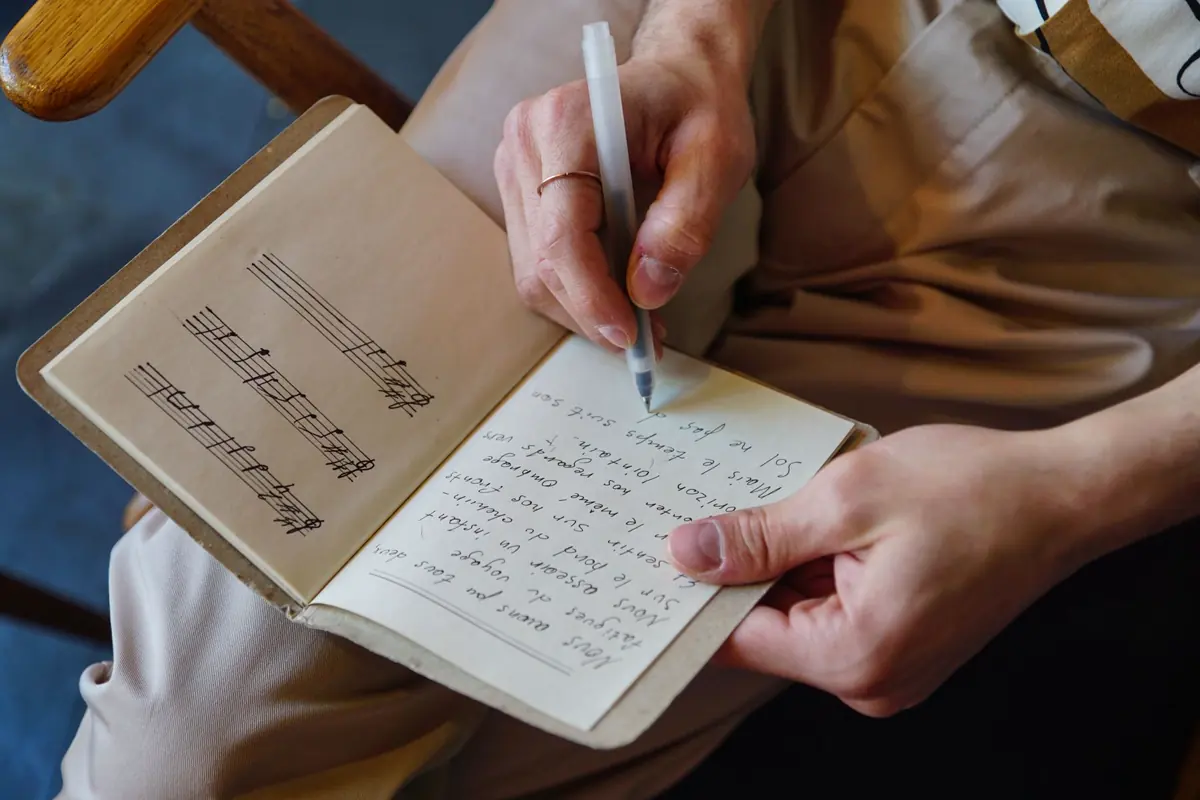 Nous avions pu tous deux,
fatigues du voyage
Nous asseoir un instant
sur le bord du chemin-
sentir sur nos fronts
le même ombrage
nos regards vers
lointain.
Mais le temps suit son
Sol ne pas